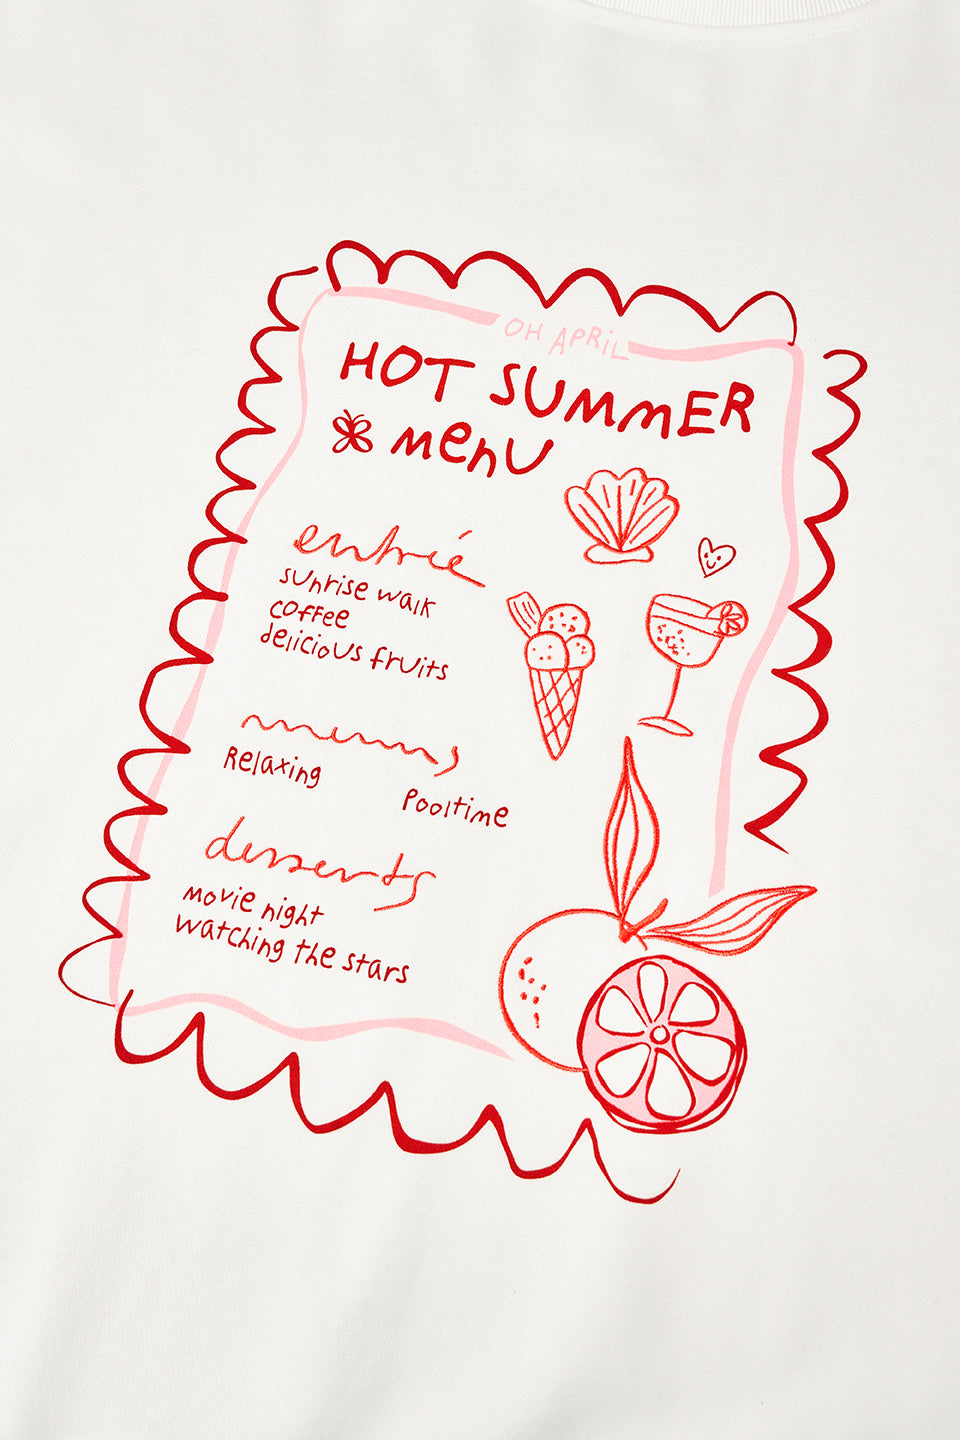 OH APRIL
HOT SUMMER
menu
entrié
sunrise walk
coffee
delicious fruits
Relaxing
Pooltime
desserts
movie night
watching the stars